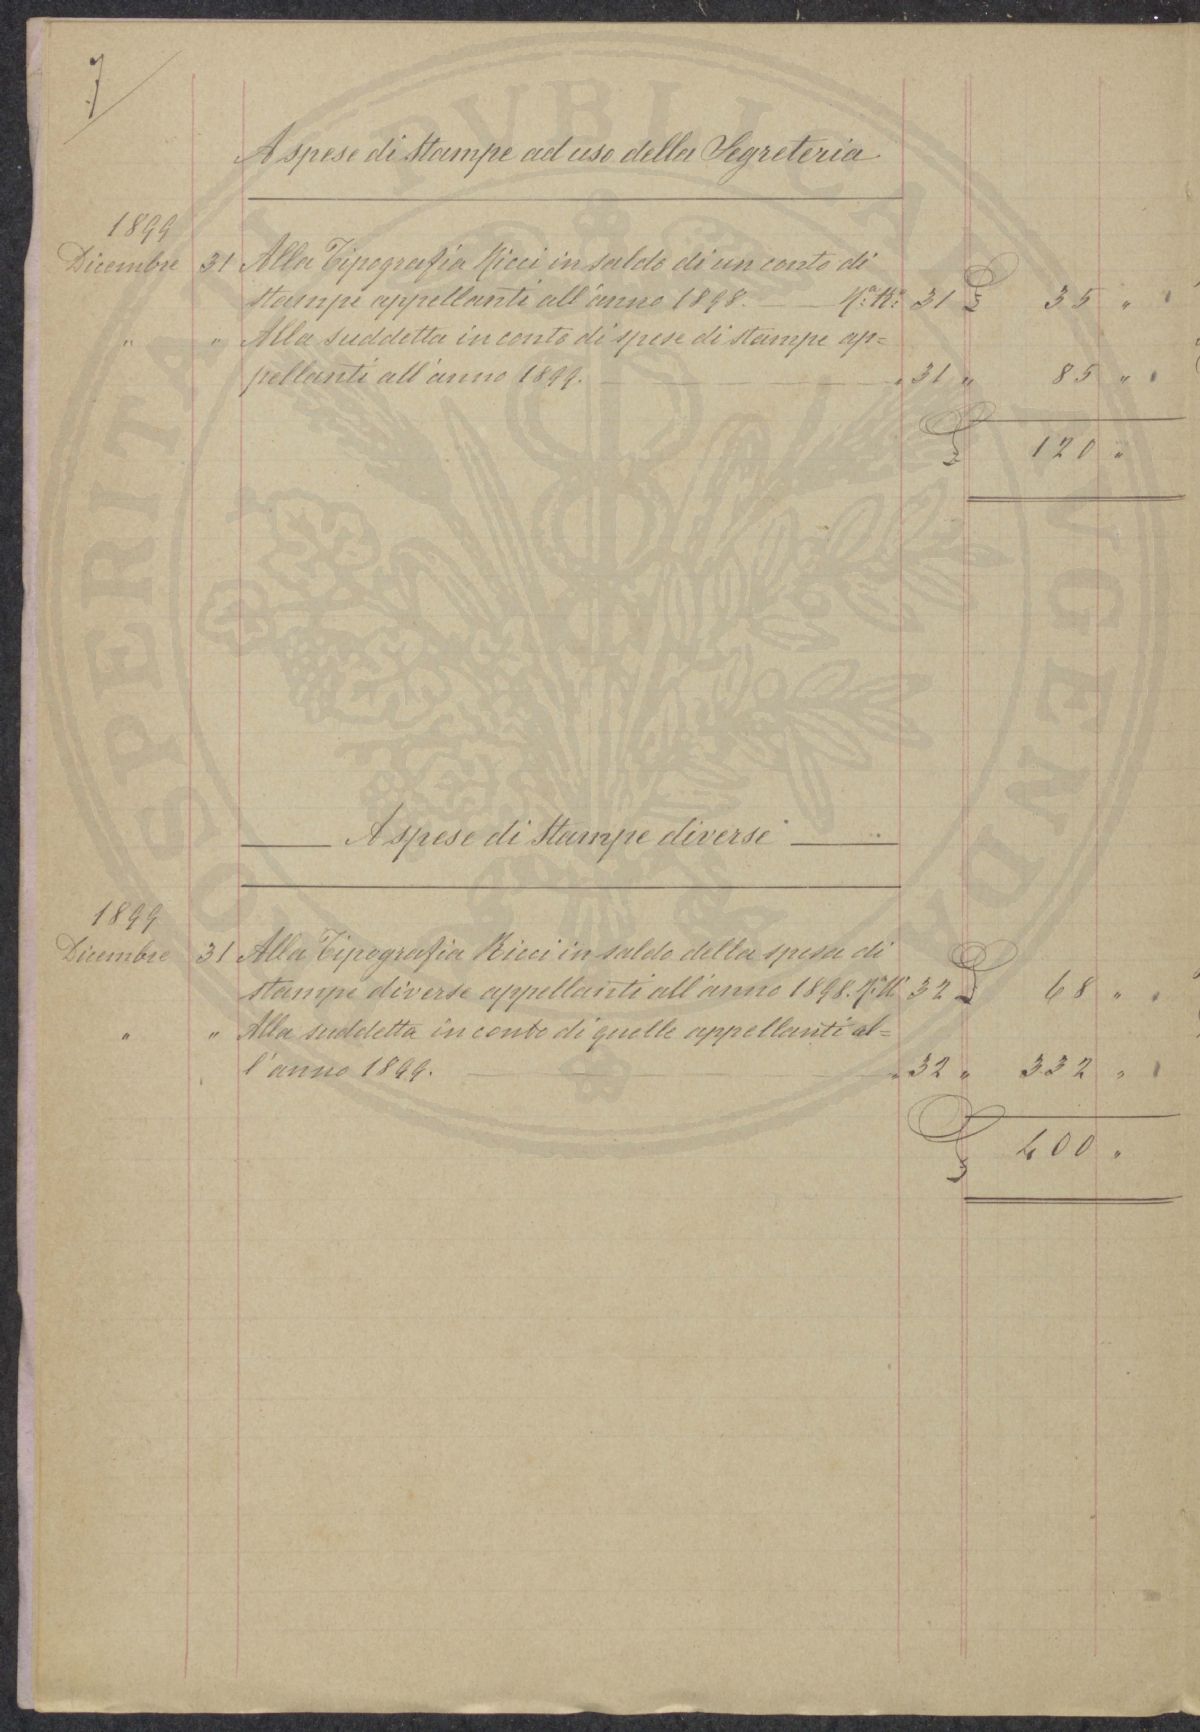 7
A spese di stampe ad uso della Segreteria
1899
Dicembre 31 Alla Tipografia Ricci in saldo di un conto di
stampe appellanti all'anno 1898. 31 £ 35 "
" " Alla suddetta in conto di spese di stampe ap=
pellanti all'anno 1899. " 31 " 85 "
£ 120 "
A spese di stampe diverse
1899
Dicembre 31 Alla Tipografia Ricci in saldo della spesa di
stampe diverse appellanti all'anno 1898. 32 £ 68 "
" " Alla suddetta in conto di quelle appellanti al=
l'anno 1899. " 32 " 332 "
£ 400 "